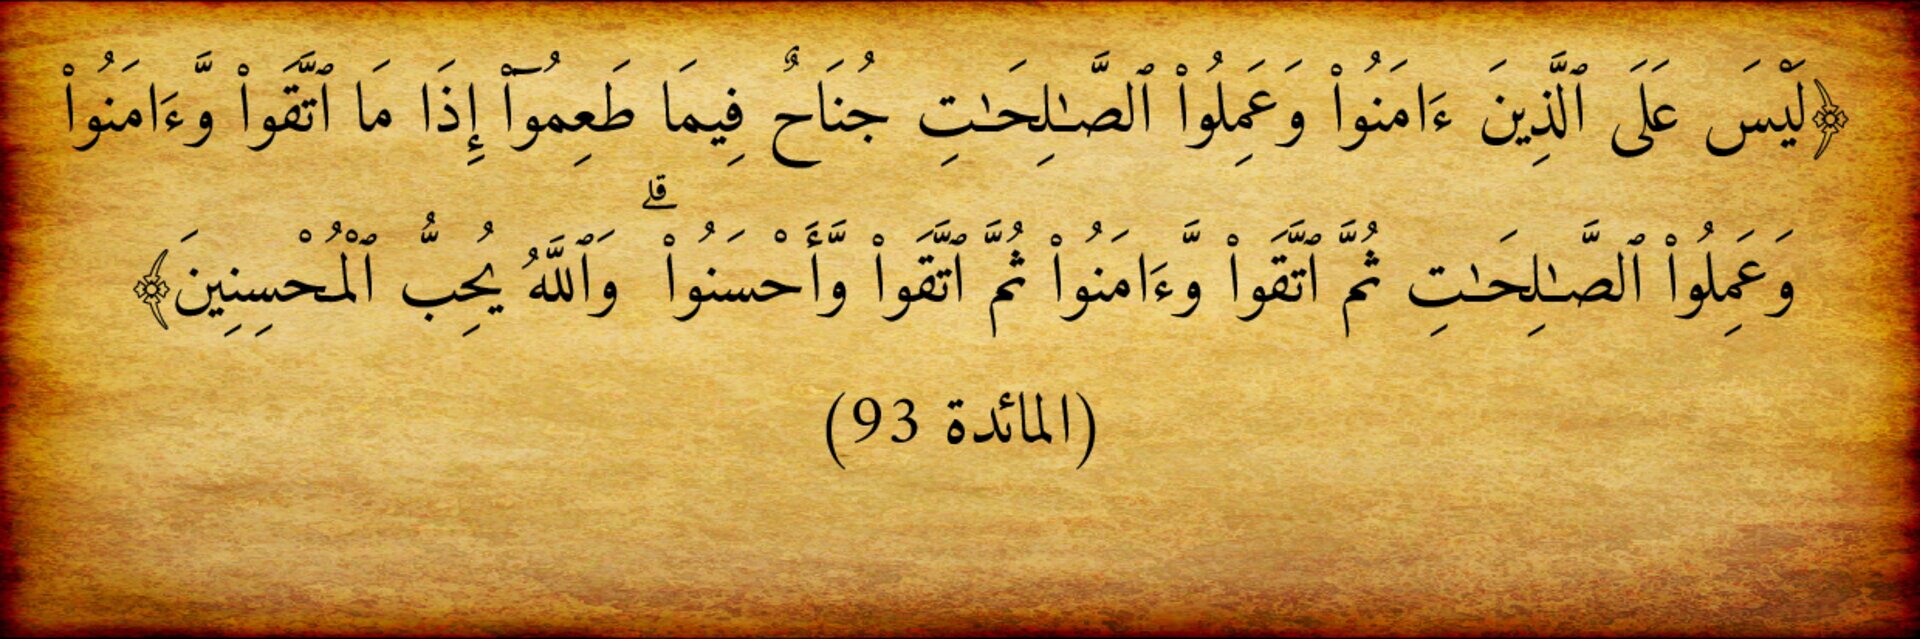 ﴿لَيْسَ عَلَى ٱلَّذِينَ ءَامَنُوا۟ وَعَمِلُوا۟ ٱلصَّـٰلِحَـٰتِ جُنَاحٌ فِيمَا طَعِمُوٓا۟ إِذَا مَا ٱتَّقَوا۟ وَّءَامَنُوا۟
وَعَمِلُوا۟ ٱلصَّـٰلِحَـٰتِ ثُمَّ ٱتَّقَوا۟ وَّءَامَنُوا۟ ثُمَّ ٱتَّقَوا۟ وَّأَحْسَنُوا۟ ۗ وَٱللَّهُ يُحِبُّ ٱلْمُحْسِنِينَ﴾
(المائدة 93)